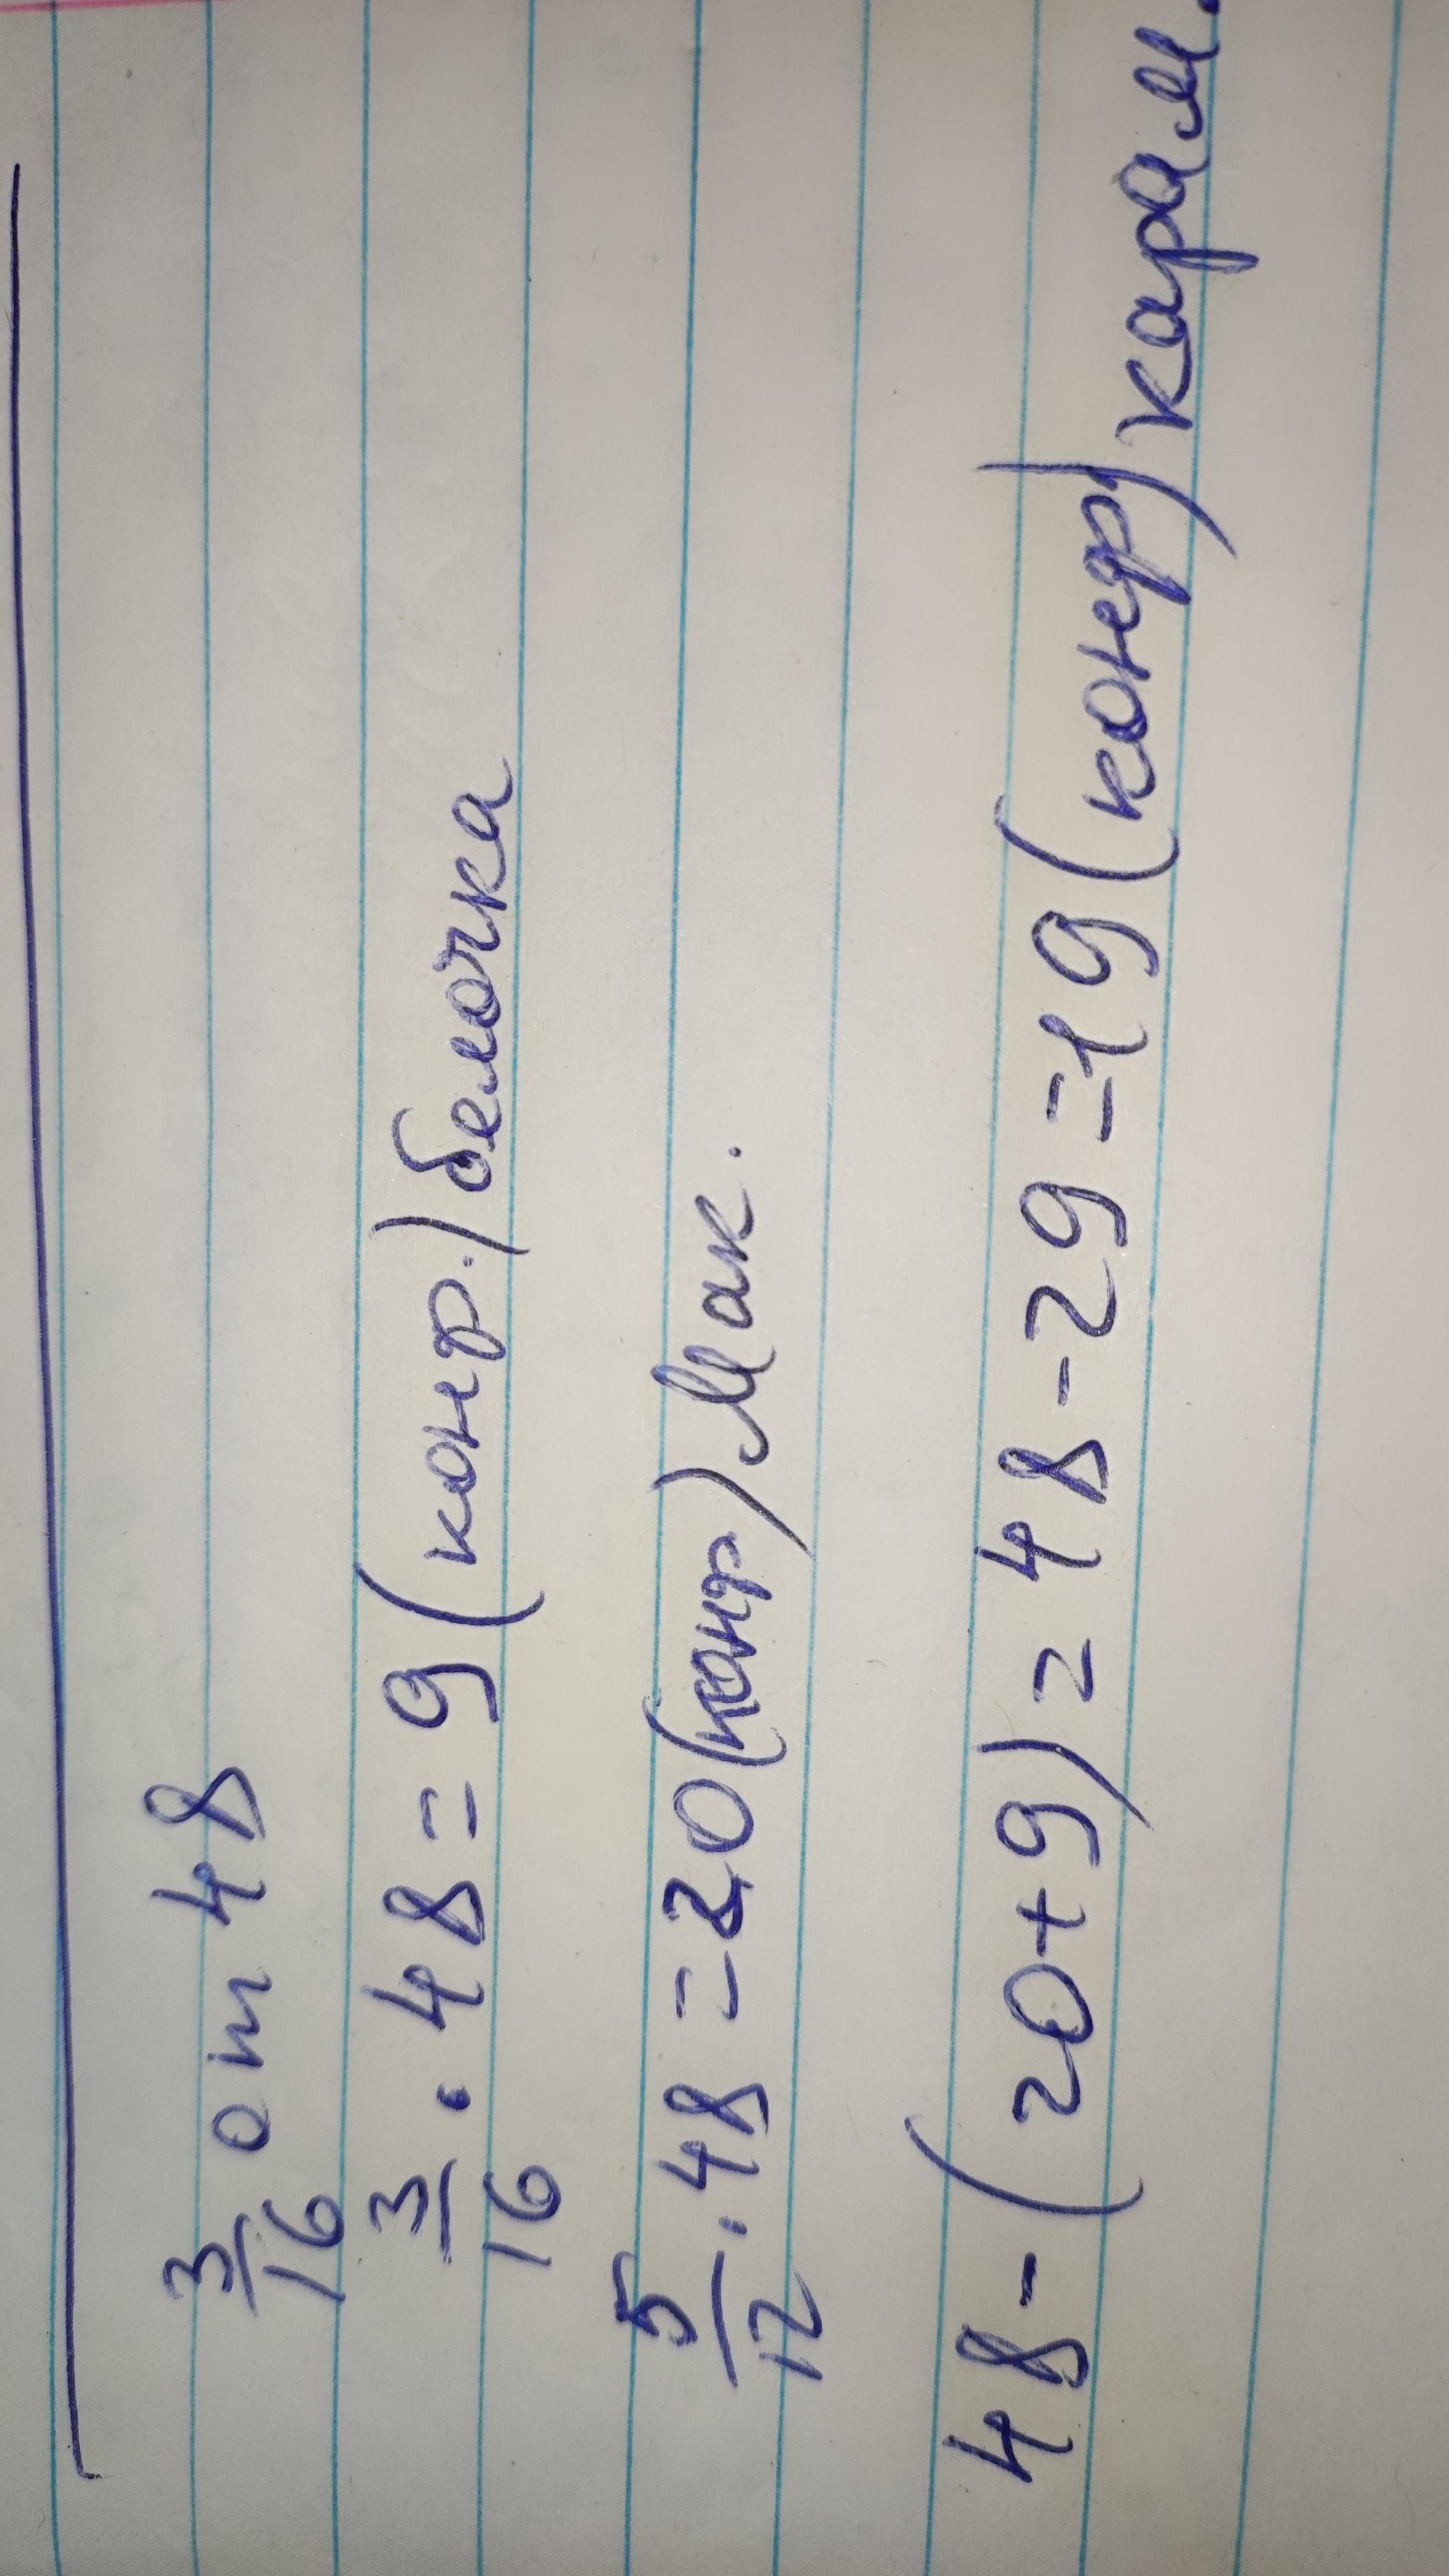 3/16 от 48
3/16 · 48 = 9 (конф.) белочка
5/12 · 48 = 20 (конф) Мак.
48 - (20 + 9) = 48 - 29 = 19 (конф) карам.